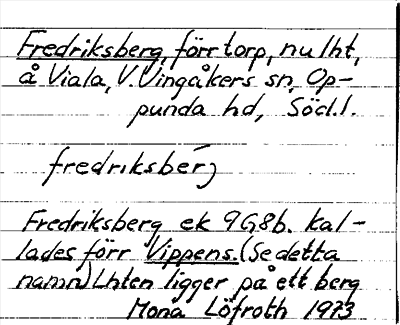 Fredriksberg, förr torp, nu lht,
å Viala, V. Vingåkers sn, Op-
punda hd, Södl.
fredriksberg
Fredriksberg ek 9G8b. Kal-
lades förr Vippens. (Se detta
namn) Lhten ligger på ett berg
Mona Löfroth 1973